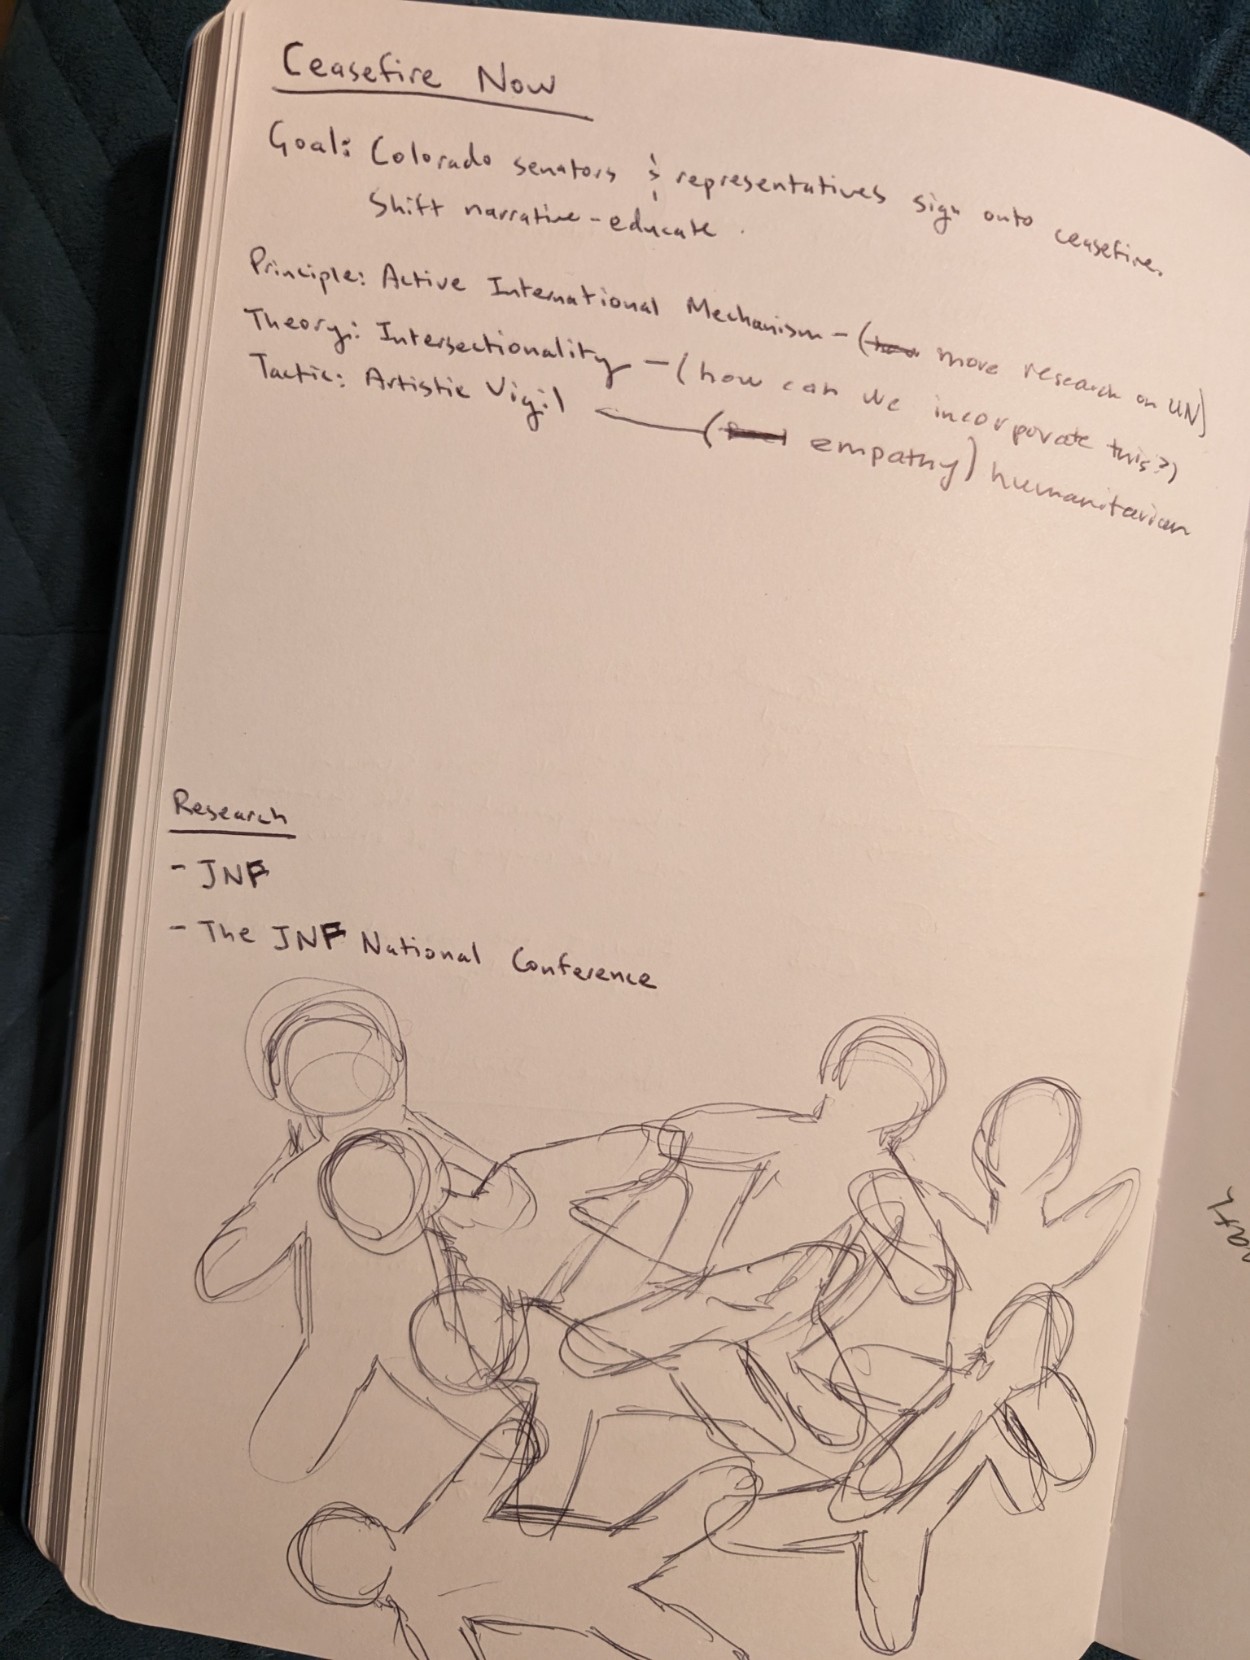 Ceasefire Now
Goal: Colorado senators & representatives sign onto ceasefire.
Shift narrative - educate.
Principle: Active International Mechanism - (more research on UN)
Theory: Intersectionality - (how can we incorporate this?)
Tactic: Artistic Vigil - (empathy) humanitarian
Research
- JNF
- The JNF National Conference